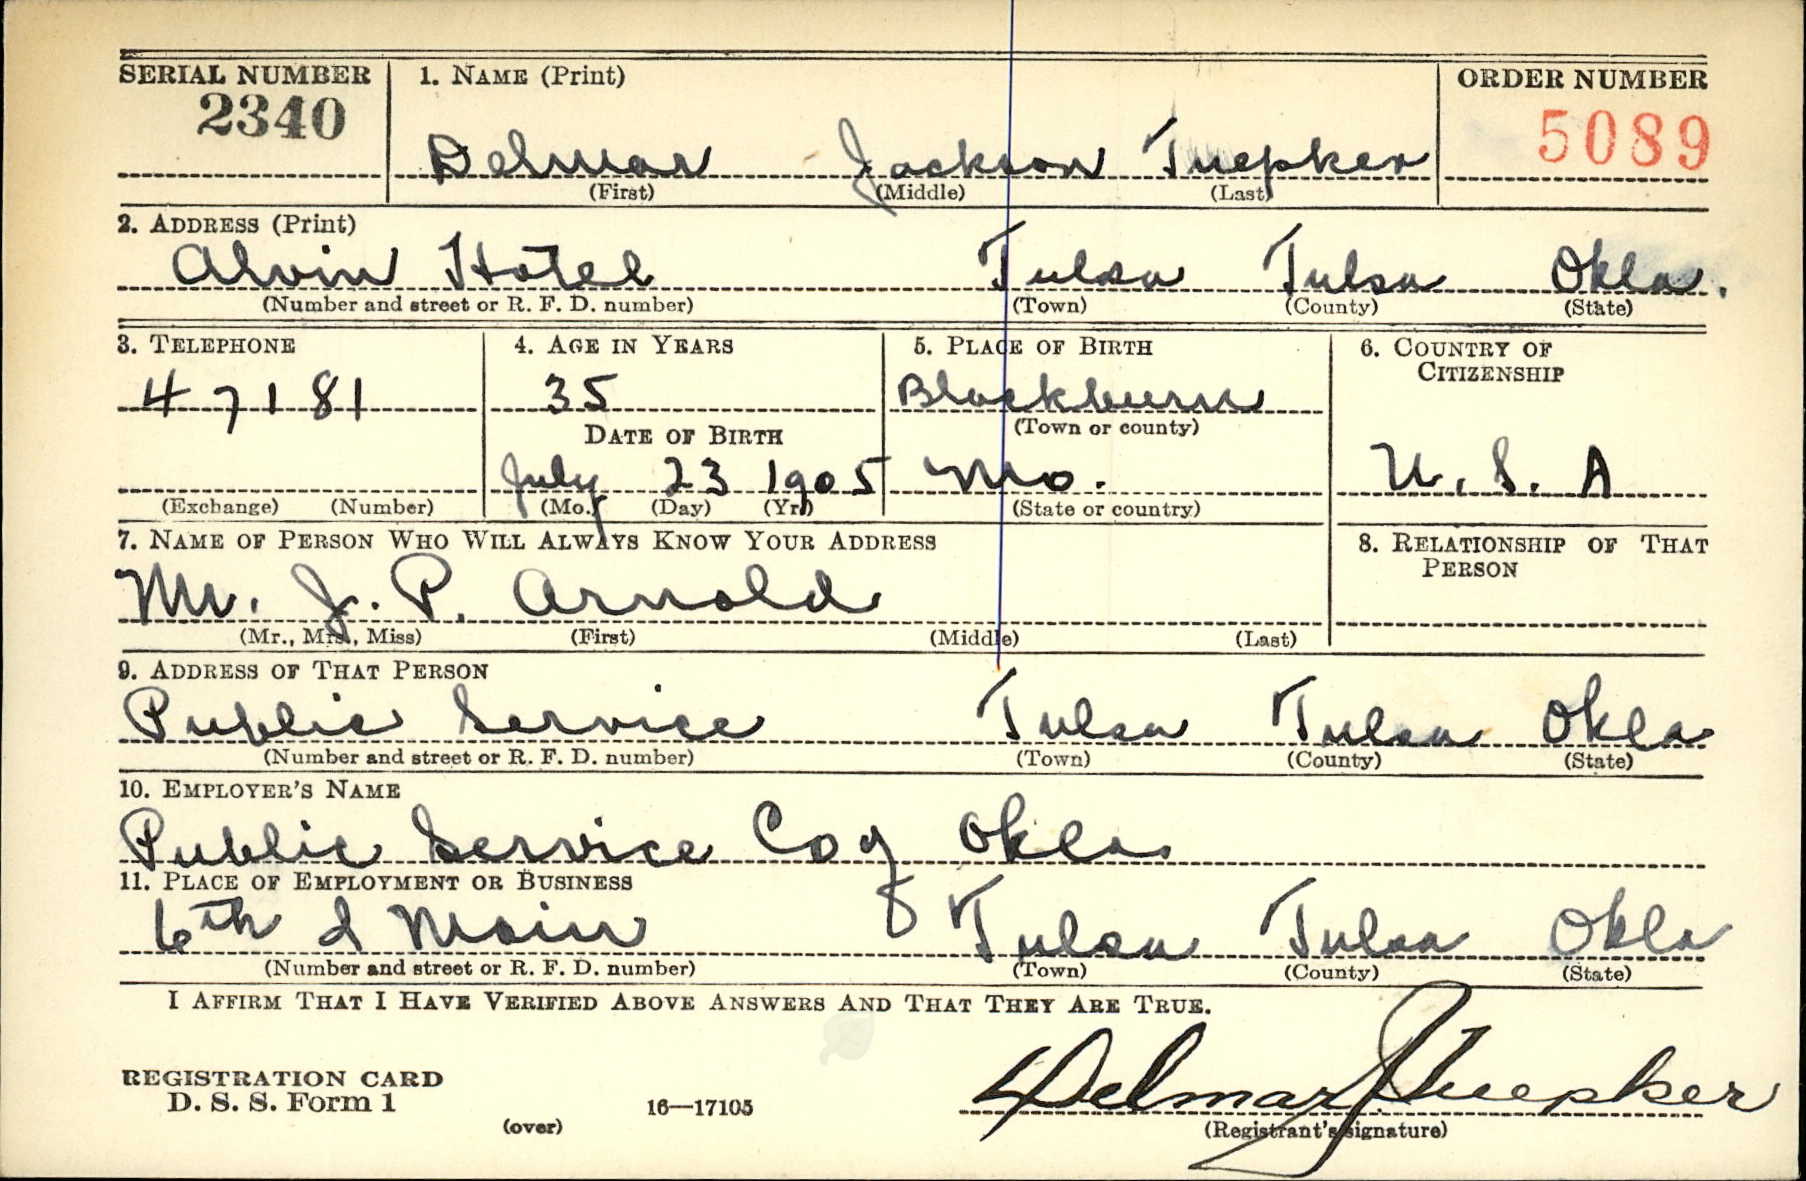 SERIAL NUMBER 1. NAME (Print) ORDER NUMBER
2340 Delmar Jackson Tuepker 5089
(First) (Middle) (Last)
2. ADDRESS (Print)
Alvin Hotel Tulsa Tulsa Okla.
(Number and street or R. F. D. number) (Town) (County) (State)
3. TELEPHONE 4. AGE IN YEARS 5. PLACE OF BIRTH 6. COUNTRY OF CITIZENSHIP
47181 35 Blackburn
DATE OF BIRTH (Town or county)
July 23 1905 Mo. U. S. A
(Exchange) (Number) (Mo.) (Day) (Yr.) (State or country)
7. NAME OF PERSON WHO WILL ALWAYS KNOW YOUR ADDRESS 8. RELATIONSHIP OF THAT PERSON
Mr. J. P. Arnold
(Mr., Mrs., Miss) (First) (Middle) (Last)
9. ADDRESS OF THAT PERSON
Public Service Tulsa Tulsa Okla
(Number and street or R. F. D. number) (Town) (County) (State)
10. EMPLOYER'S NAME
Public Service Co of Okla.
11. PLACE OF EMPLOYMENT OR BUSINESS
6th & Main Tulsa Tulsa Okla
(Number and street or R. F. D. number) (Town) (County) (State)
I AFFIRM THAT I HAVE VERIFIED ABOVE ANSWERS AND THAT THEY ARE TRUE.
REGISTRATION CARD
D. S. S. Form 1 16—17105 Delmar J Tuepker
(over) (Registrant's signature)